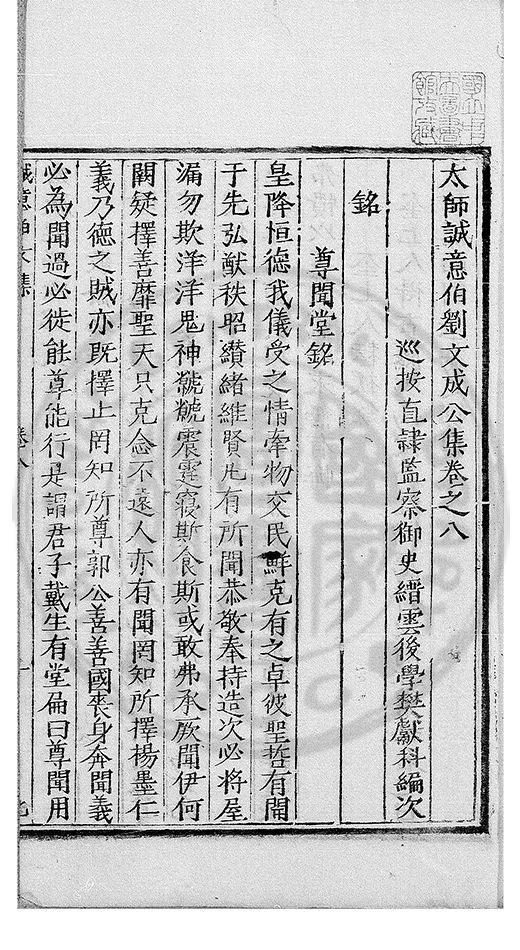 太師誠意伯劉文成公集卷之八
巡按直隸監察御史縉雲後學樊獻科編次
銘
尊聞堂銘
皇降恒德我儀受之情牽物交民鮮克有之卓彼聖哲有開
于先弘猷秩昭纘緒維賢凢有所聞恭敬奉持造次必將屋
漏勿欺洋洋鬼神虩虩震霆寢斯食斯或敢弗承厥聞伊何
闕疑擇善靡聖天只克念不遠人亦有聞罔知所擇楊墨仁
義乃德之賊亦既擇止罔知所尊郭公善善國喪身奔聞義
必為聞過必徙能尊能行是謂君子戴生有堂扁曰尊聞用
誠意伯文集 卷八 一